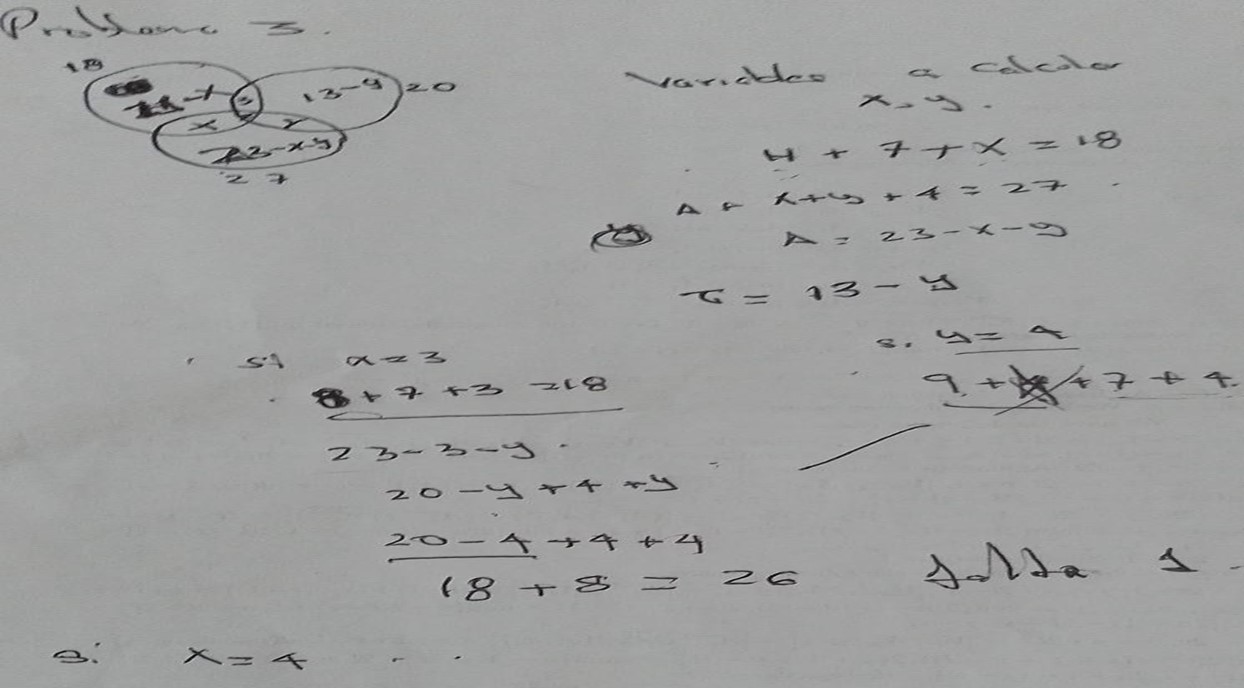 Problema 3.
18
11-x 13-y 20
x y
23-x-y
27
Variables a calcular
x, y.
4 + 7 + x = 18
A + x+y + 4 = 27
A = 23-x-y
= 13 - y
si x = 3
8 + 7 + 3 = 18
s. y = 4
9 + + 7 + 4
23-3-y.
20 -y + 4 + y
20 - 4 + 4 + 4
18 + 8 = 26
falta 1.
si x = 4 . .